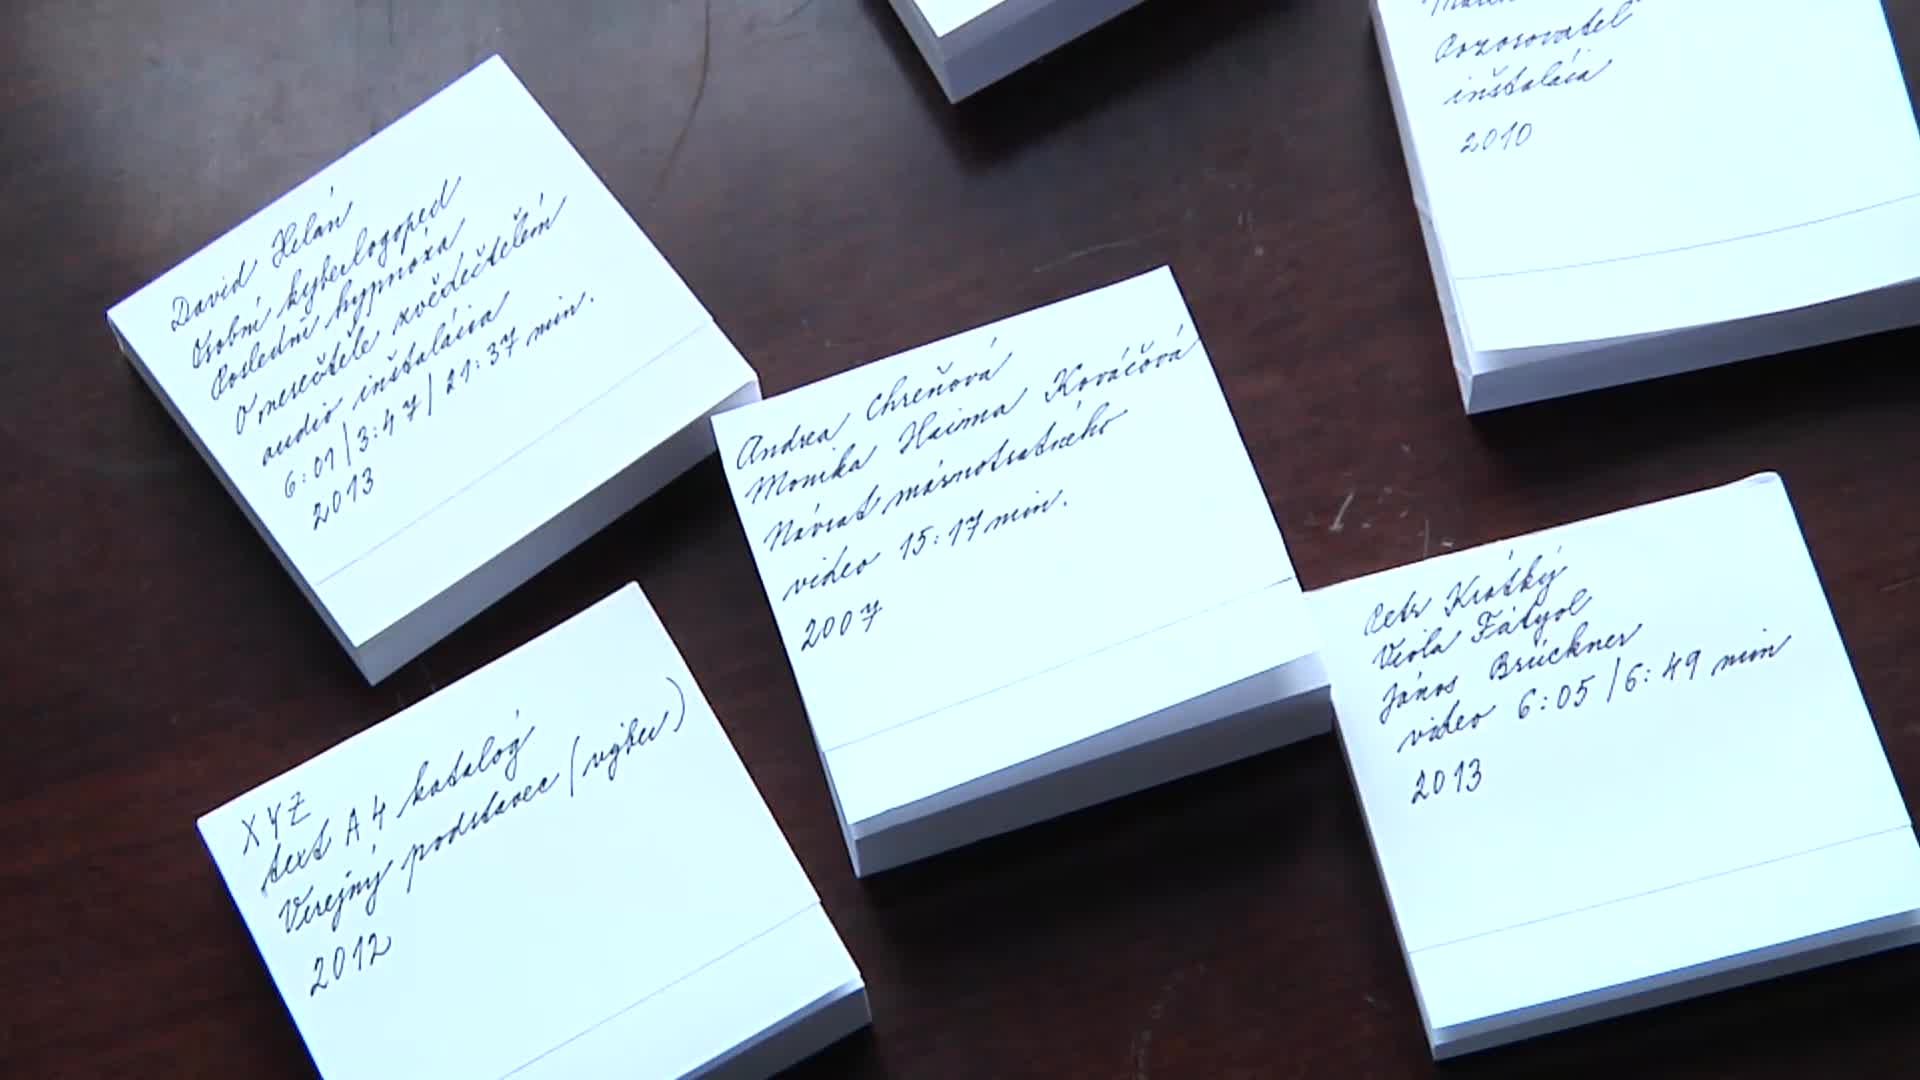 David Helán
Osobní kyberlogoped
Poslední hypnóza
O nesečtěle zvědečtělém
audio inštalácia
6:01 | 3:47 | 21:37 min.
2013
Pozorovateľ
inštalácia
2010
Andrea Chreňová
Monika Haima Kováčová
Návrat márnotratného
video 15:17 min.
2007
Petr Krátký
Viola Fátyol
János Brückner
video 6:05 | 6:49 min
2013
XYZ
text A4 katalóg
Verejný podstavec (výber)
2012